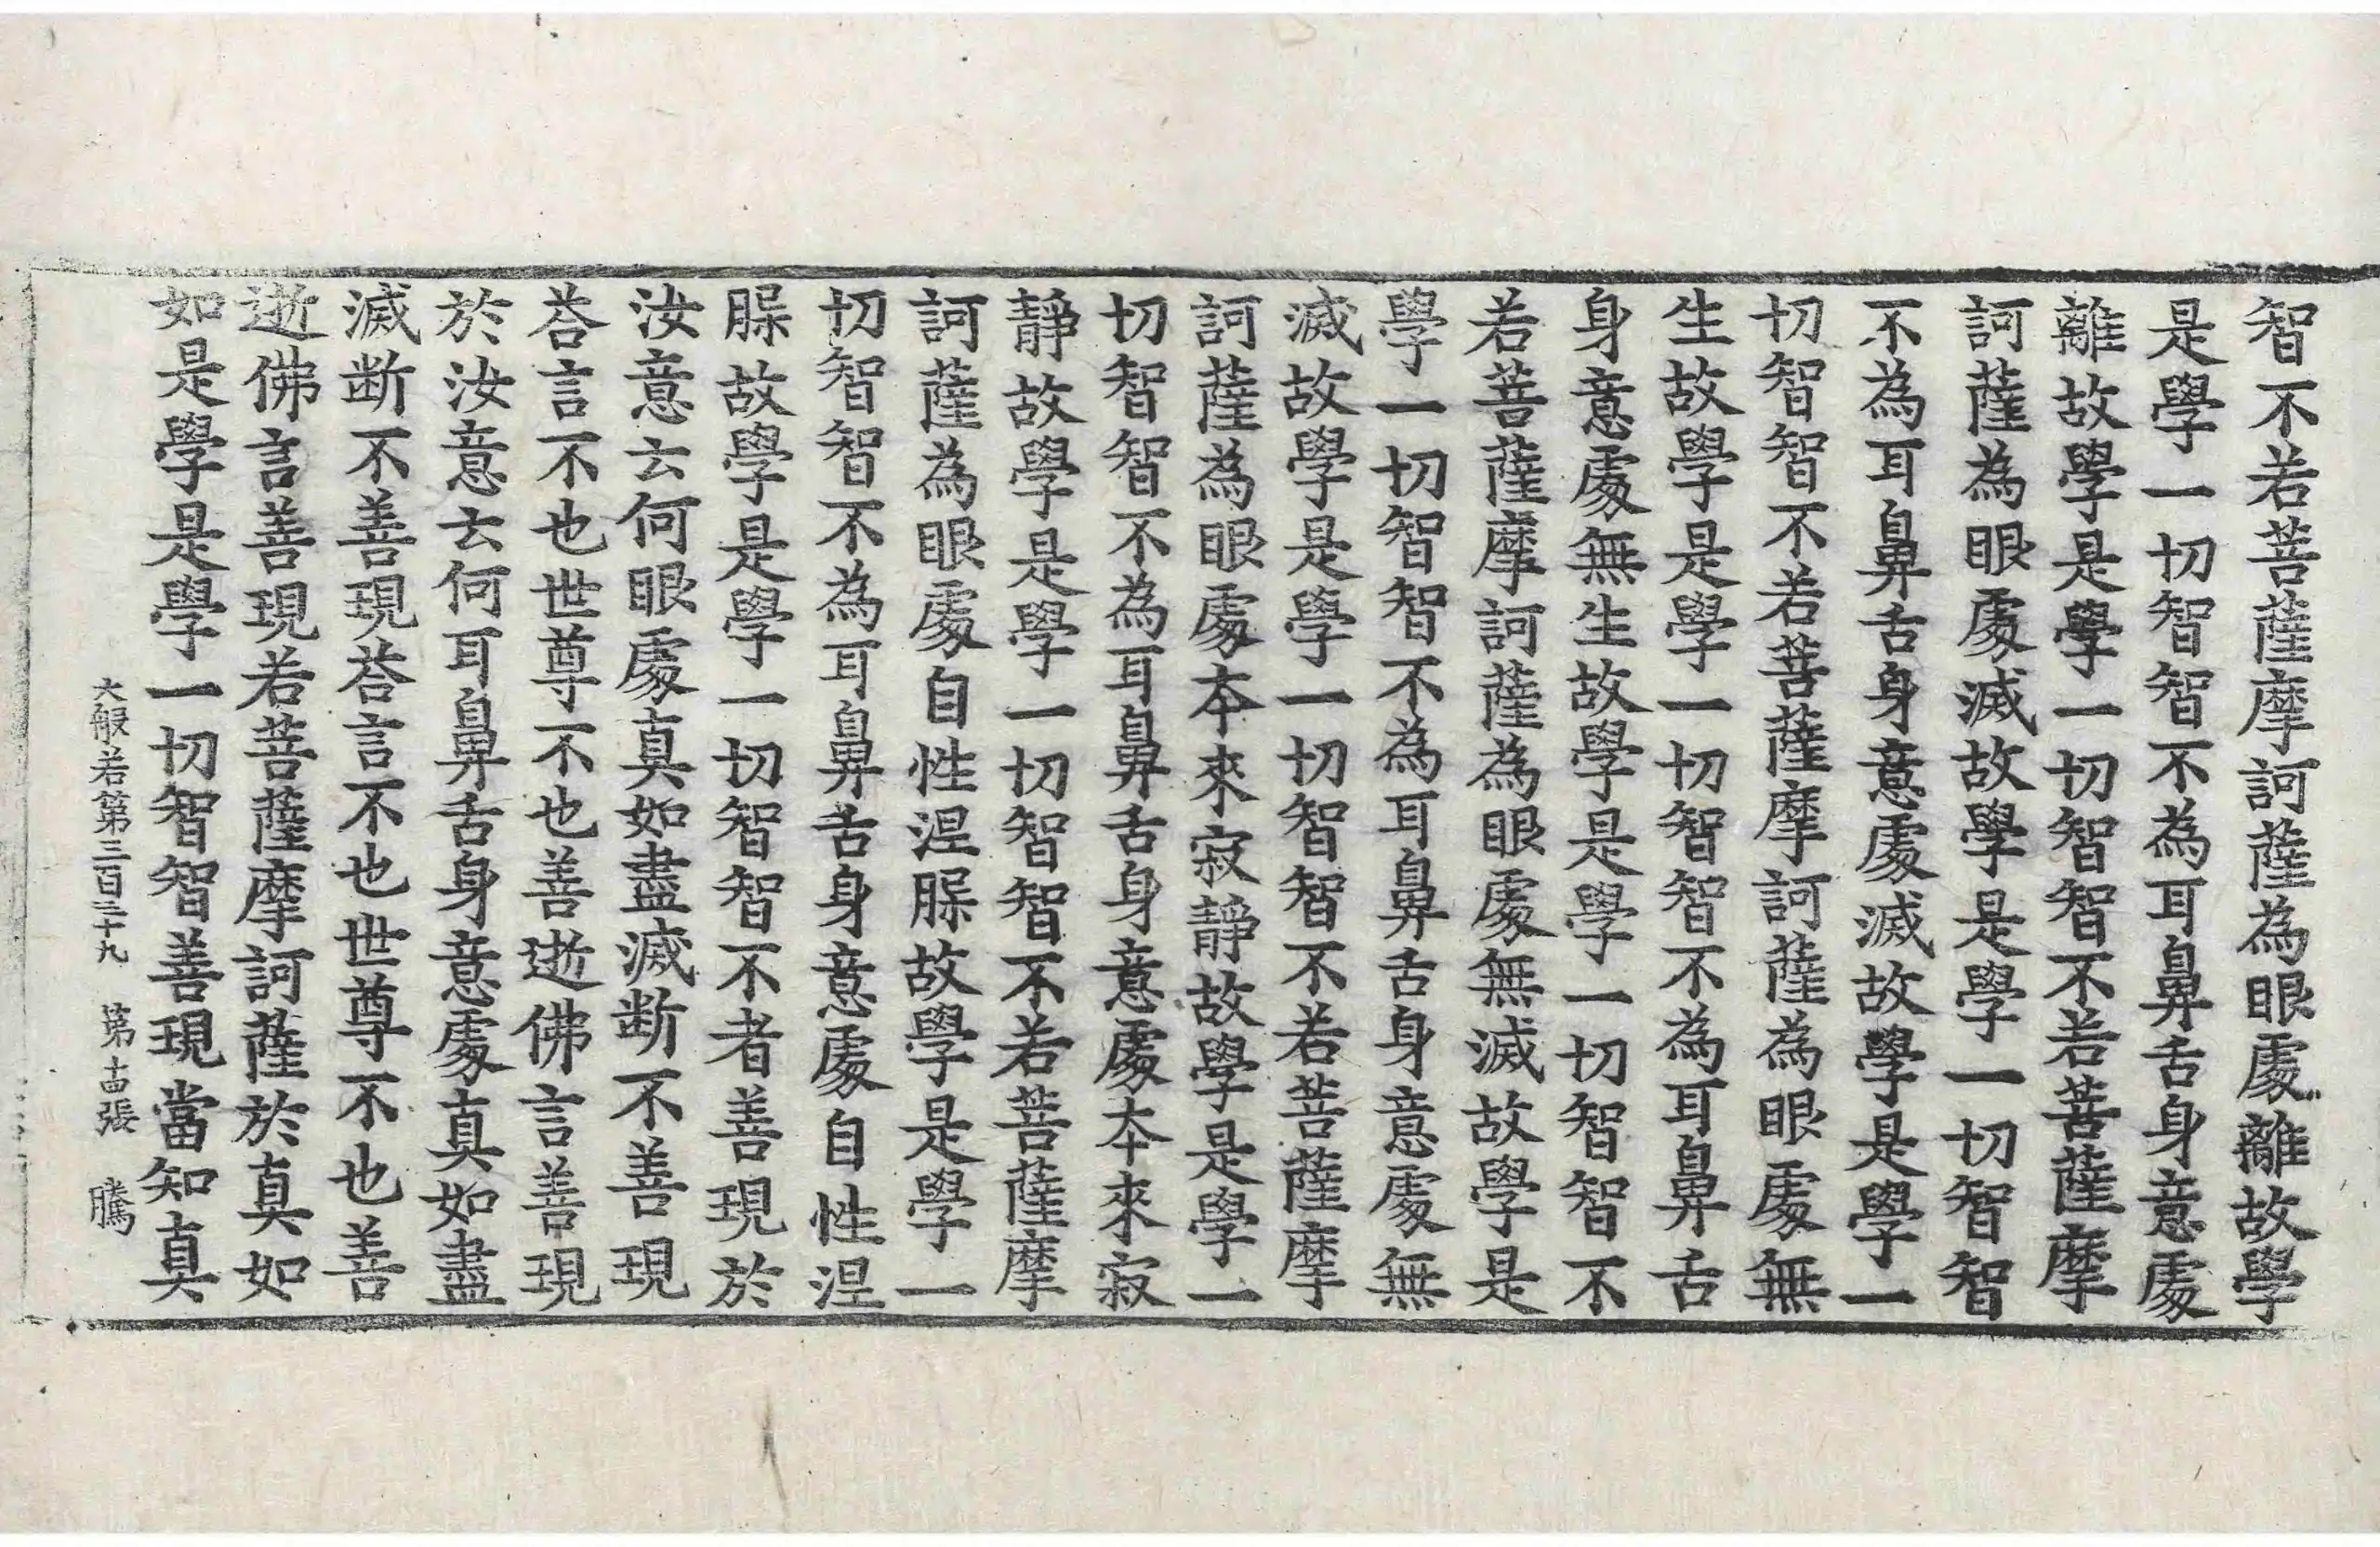 智不若菩薩摩訶薩為眼處離故學
是學一切智智不為耳鼻舌身意處
離故學是學一切智智不若菩薩摩
訶薩為眼處滅故學是學一切智智
不為耳鼻舌身意處滅故學是學一
切智智不若菩薩摩訶薩為眼處無
生故學是學一切智智不為耳鼻舌
身意處無生故學是學一切智智不
若菩薩摩訶薩為眼處無滅故學是
學一切智智不為耳鼻舌身意處無
滅故學是學一切智智不若菩薩摩
訶薩為眼處本來寂靜故學是學一
切智智不為耳鼻舌身意處本來寂
靜故學是學一切智智不若菩薩摩
訶薩為眼處自性涅腺故學是學一
切智智不為耳鼻舌身意處自性涅
腺故學是學一切智智不者善現於
汝意云何眼處真如盡滅断不善現
荅言不也世尊不也善逝佛言善現
於汝意云何耳鼻舌身意處真如盡
滅断不善現荅言不也世尊不也善
逝佛言善現若菩薩摩訶薩於真如
如是學是學一切智智善現當知真
大般若第三百三十九 第十四張 騰